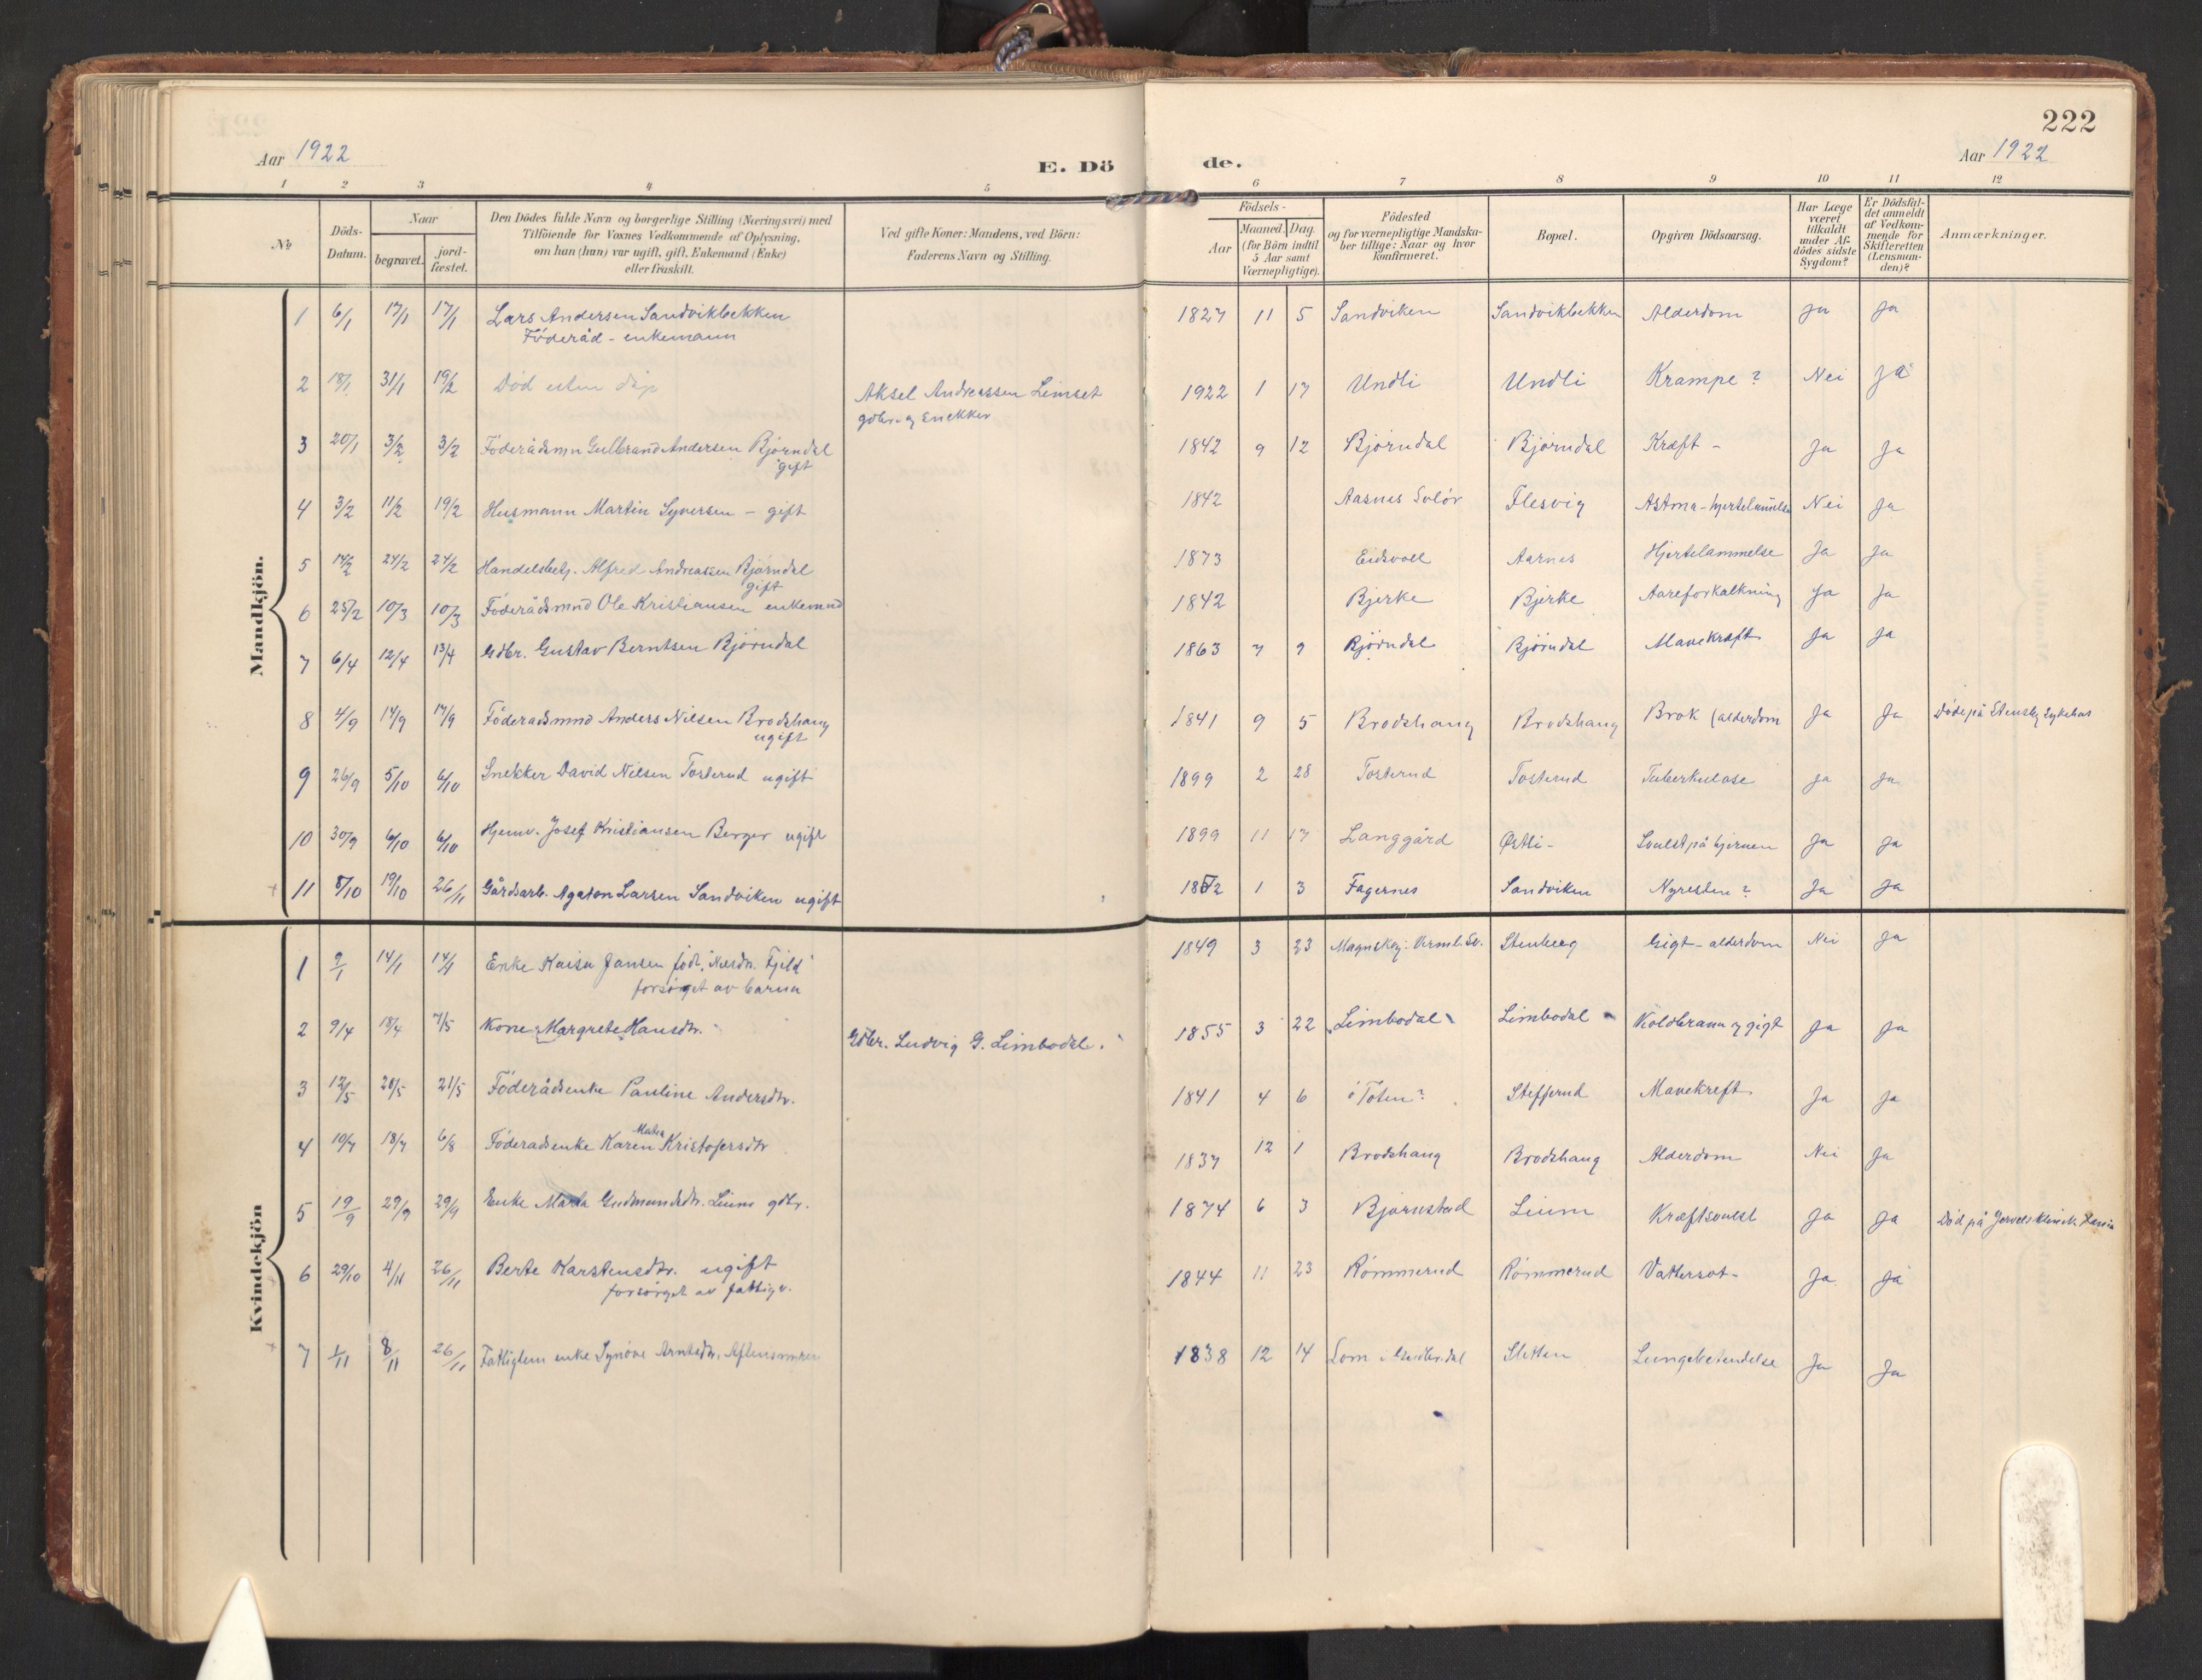 222
Aar 1922
E. Dö
de.
Aar 1922
1 2 3 4 5 6 7 8 9 10 11 12
№
Döds-
Datum.
Naar
begravet.
jord-
fæstet.
Den Dödes fulde Navn og borgerlige Stilling (Næringsvei) med
Tilföiende for Voxnes Vedkommende af Oplysning,
om han (hun) var ugift, gift, Enkemand (Enke)
eller fraskilt.
Ved gifte Koner: Mandens, ved Börn:
Faderens Navn og Stilling.
Födsels-
Aar
Maaned. Dag.
(for Börn indtil
5 Aar samt
Værnepligtige).
Födested
og for værnepligtige Mandska-
ber tillige: Naar og hvor
konfirmeret.
Bopæl.
Opgiven Dödsaarsag.
Har Læge
været
tilkaldt
under Af-
dödes sidste
Sygdom?
Er Dödsfal-
det anmeldt
af Vedkom-
mende for
Skifteretten
(Lensman-
den)?
Anmærkninger.
Mandkjön.
1 6/1 17/1 17/1 Lars Andersen Sandvikbekken 1827 11 5 Sandviken Sandvikbekken Alderdom Ja Ja
Föderåd - enkemann
2 18/1 31/1 19/2 Död uten dåp Aksel Andreassen Limset 1922 1 17 Undli Undli Krampe? Nei Ja
gdbr. og snekker
3 20/1 3/2 3/2 Föderådsmn Gulbrand Andersen Björndal 1842 9 12 Björndal Björndal Kræft - Ja Ja
gift
4 3/2 11/2 19/2 Husmann Martin Syversen - gift 1842 Aasnes Solör Flesvig Astma - hjertelammelse Nei Ja
5 14/2 24/2 24/2 Handelsbetj. Alfred Andreassen Björndal 1873 Eidsvoll Aarnes Hjertelammelse Ja Ja
gift
6 25/2 10/3 10/3 Föderådsmnd Ole Kristiansen enkemnd 1842 Bjerke Bjerke Aareforkalkning Ja Ja
7 6/4 12/4 13/4 Gdbr. Gustav Berntsen Björndal 1863 7 9 Björndal Björndal Mavekræft Ja Ja
8 4/9 14/9 14/9 Föderadsmnd Anders Nilsen Brodshaug 1841 9 5 Brodshaug Brodshaug Brok (alderdom Ja Ja Döde på Stensby Sykehus
ugift
9 26/9 5/10 6/10 Snekker David Nilsen Tosterud ugift 1899 2 28 Tosterud Tosterud Tuberkulose Ja Ja
10 30/9 6/10 6/10 Hjemv. Josef Kristiansen Berger ugift 1899 11 17 Langgård Østli - Svulst på hjernen Ja Ja
11 8/10 19/10 26/11 Gårdsarb. Agaton Larsen Sandviken ugift 1852 1 3 Fagernes Sandviken Nyresten? Ja Ja
Kvindekjön
1 9/1 14/1 14/1 Enke Kaisa Jansen född 1849 3 23 Stenberg Gigt - alderdom Nei Ja
forsörget av barna
2 9/4 18/4 7/5 Kone Margrete Hansdtr. Gdbr. Ludvig G. Limbodal. 1855 3 22 Limbodal Limbodal Koldbrann og gigt Ja Ja
3 12/5 20/5 21/5 Föderådsenke Pauline Andersdtr. 1841 4 6 Toten? Stefferud Mavekreft Ja Ja
4 10/7 18/7 6/8 Föderadsenke Karen Maten Kristofersdtr 1837 12 1 Brodshaug Brodshaug Alderdom Nei Ja
5 19/9 29/9 29/9 Enke Marta Gudmundsdtr. Lium gdbr. 1874 6 3 Björnstad Lium Kræftsvulst Ja Ja Död på
6 29/10 4/11 26/11 Berte Karstensdtr. ugift 1844 11 23 Römmerud Römmerud Vattersot - Ja Ja
forsörget av fattigv.
7 1/11 8/11 26/11 Fattiglem enke Synöve Arntsdtr. 1838 12 14 Lom i Gudbr.dal Sletten Lungebetendelse Ja Ja